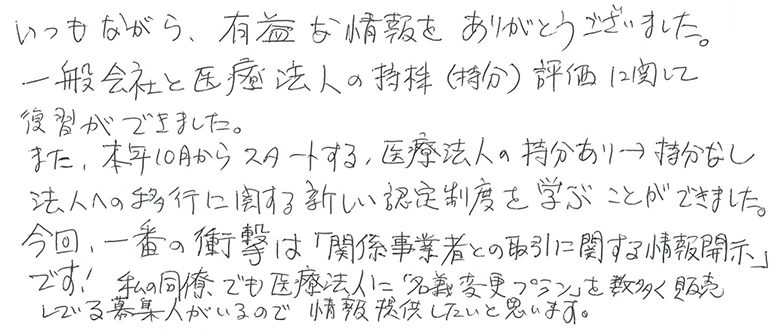 いつもながら、有益な情報をありがとうございました。
一般会社と医療法人の持株(持分)評価に関して
復習ができました。
また、本年10月からスタートする、医療法人の持分あり→持分なし
法人への移行に関する新しい認定制度を学ぶことができました。
今回、一番の衝撃は「関係事業者との取引に関する情報開示」
です! 私の同僚でも医療法人に「名義変更プラン」を数多く販売
している募集人がいるので情報提供したいと思います。